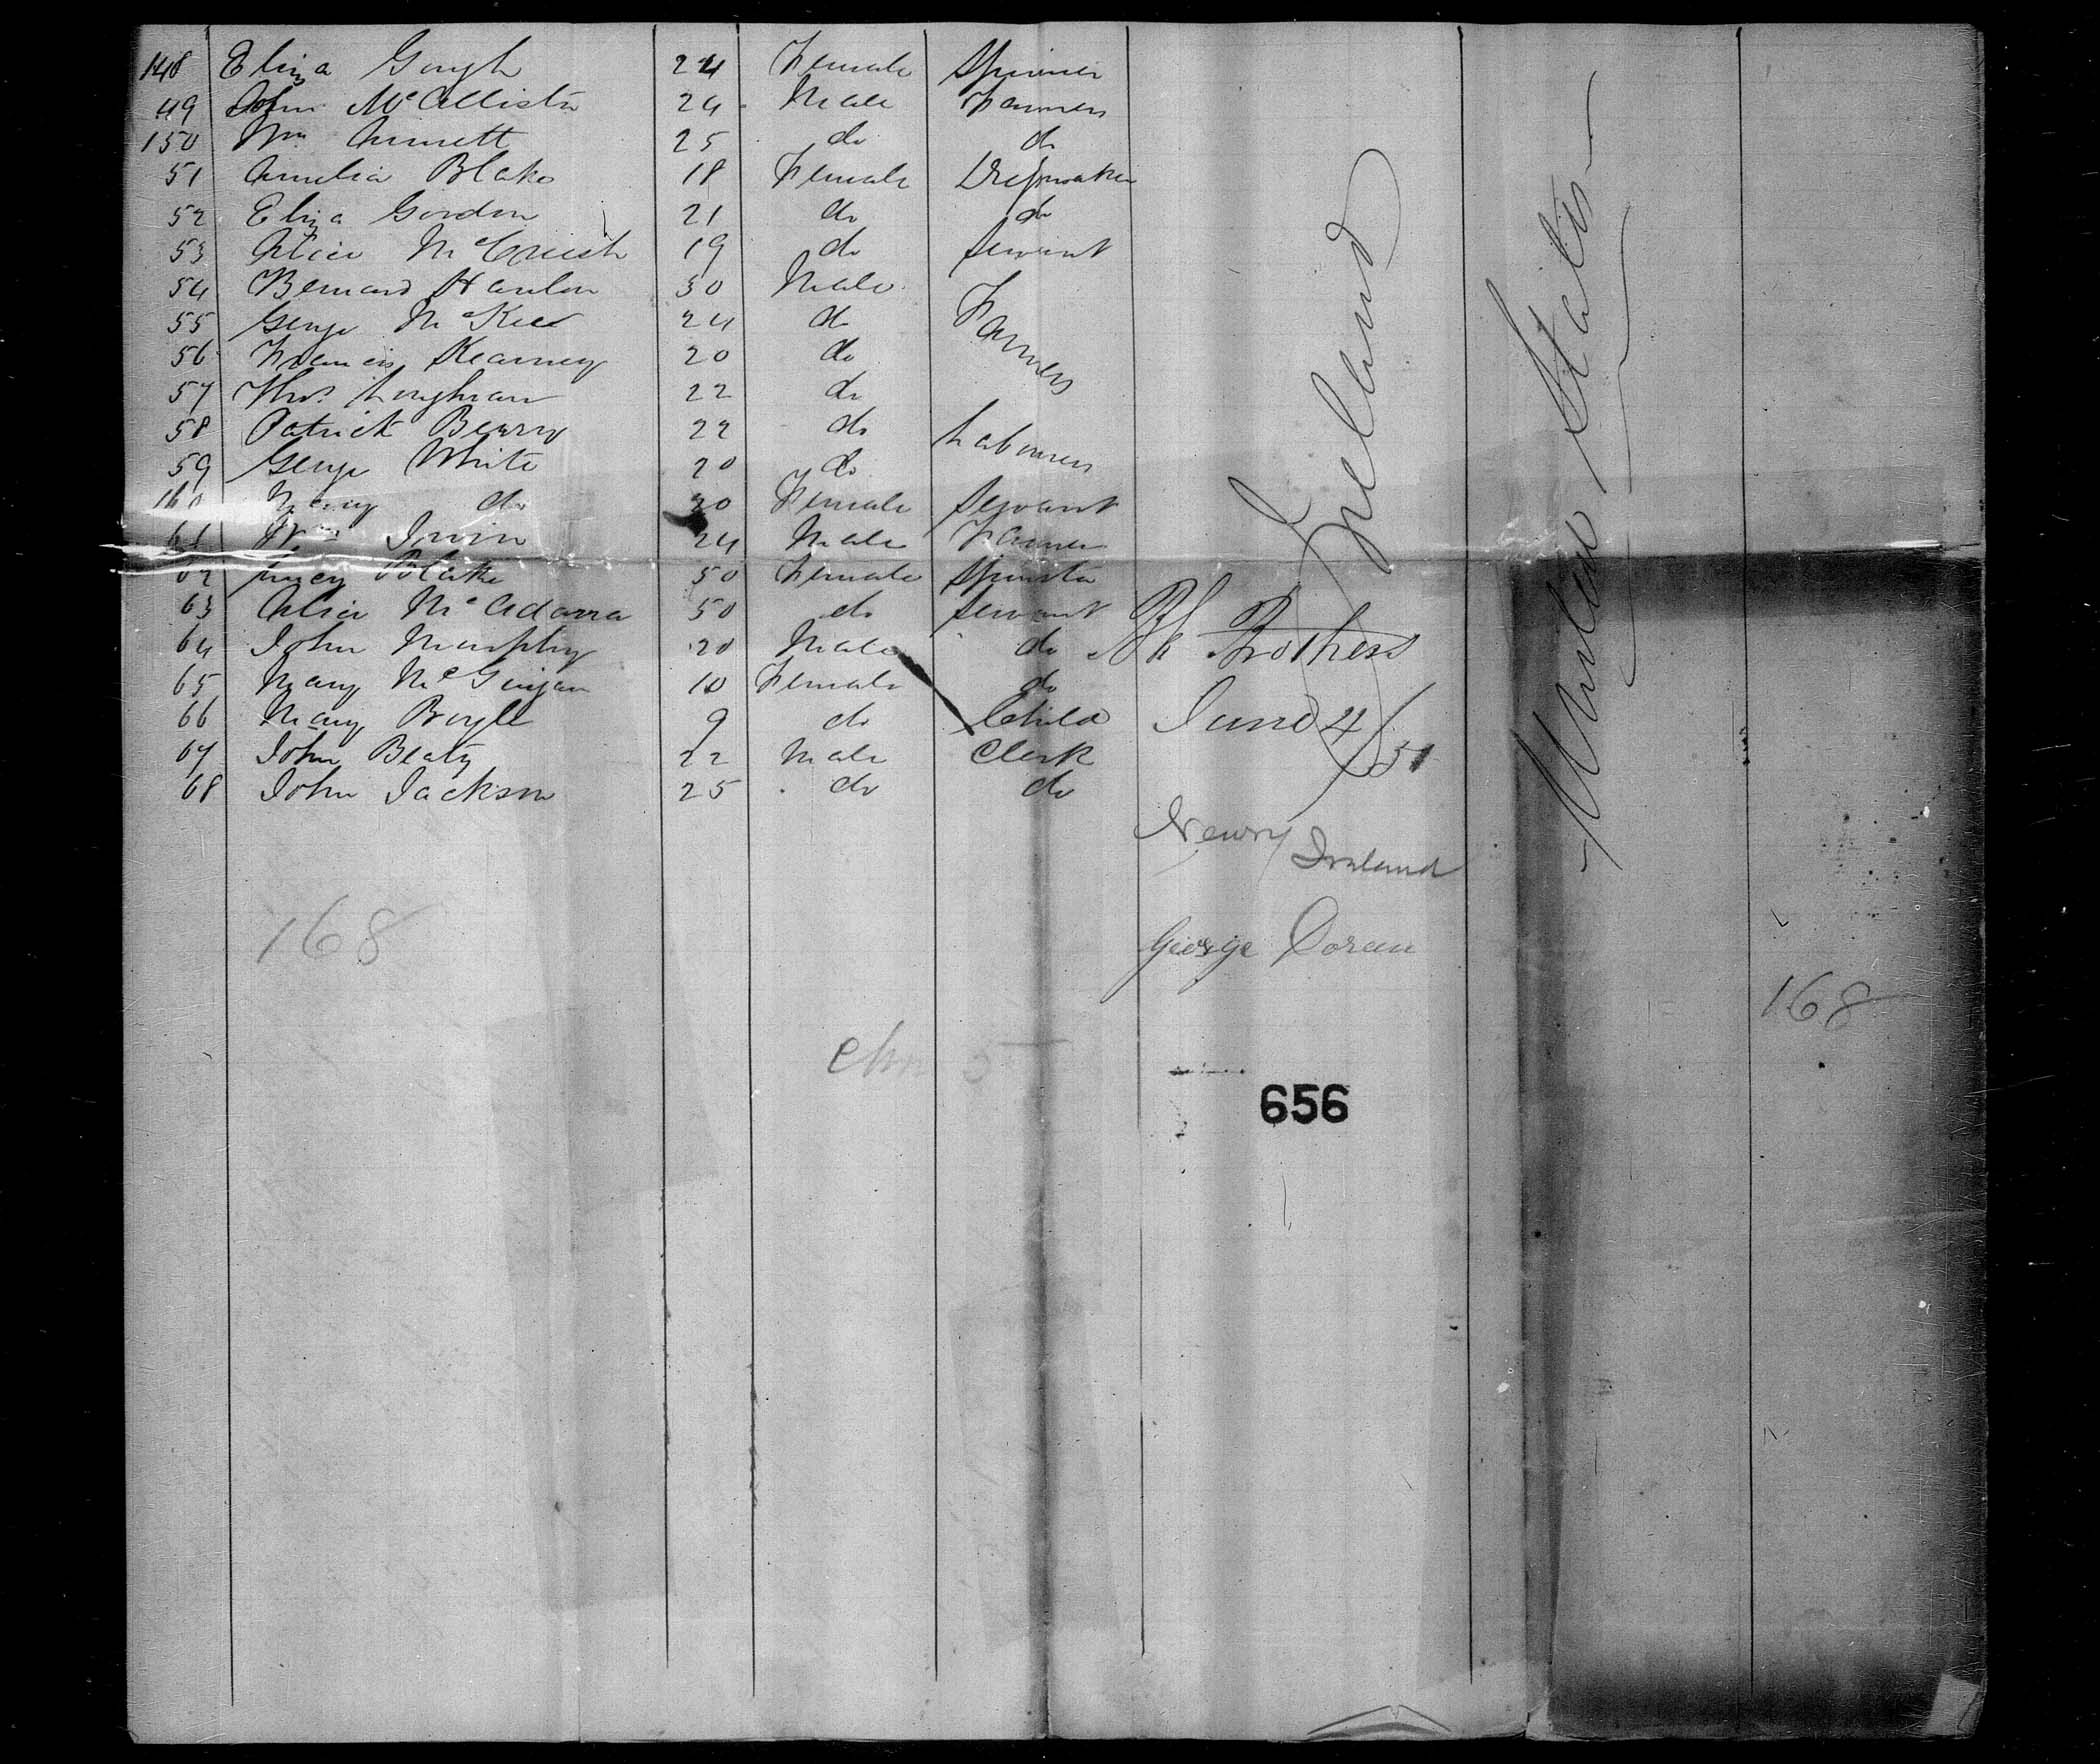 148 Eliza Gough 24 Female Spinner
49 John McAllister 24 Male Farmers
150 Wm Annett 25 do do
51 Amelia Blake 18 Female Dressmaker
52 Eliza Gordon 21 do do
53 Alice McCreesh 19 do Servant
54 Bernard Hanlon 30 Male
55 George McKee 24 do Farmers
56 Francis Kearney 20 do
57 Thos Loughran 22 do
58 Patrick Berry 22 do Labourers
59 George White 20 do
160 Mary do 20 Female Servant
61 Wm Irvin 24 Male Farmer
62 Lucy Blake 50 Female Spinster
63 Alice McAdarra 50 do Servant
64 John Murphy 20 Male do
65 Mary McGuigan 10 Female do
66 Mary Boyle 9 do Child
67 John Beaty 22 Male Clerk
68 John Jackson 25 do do
Ireland
United States
Bk Brothers
June 4/51
Newry Ireland
George Doran
168
168
656